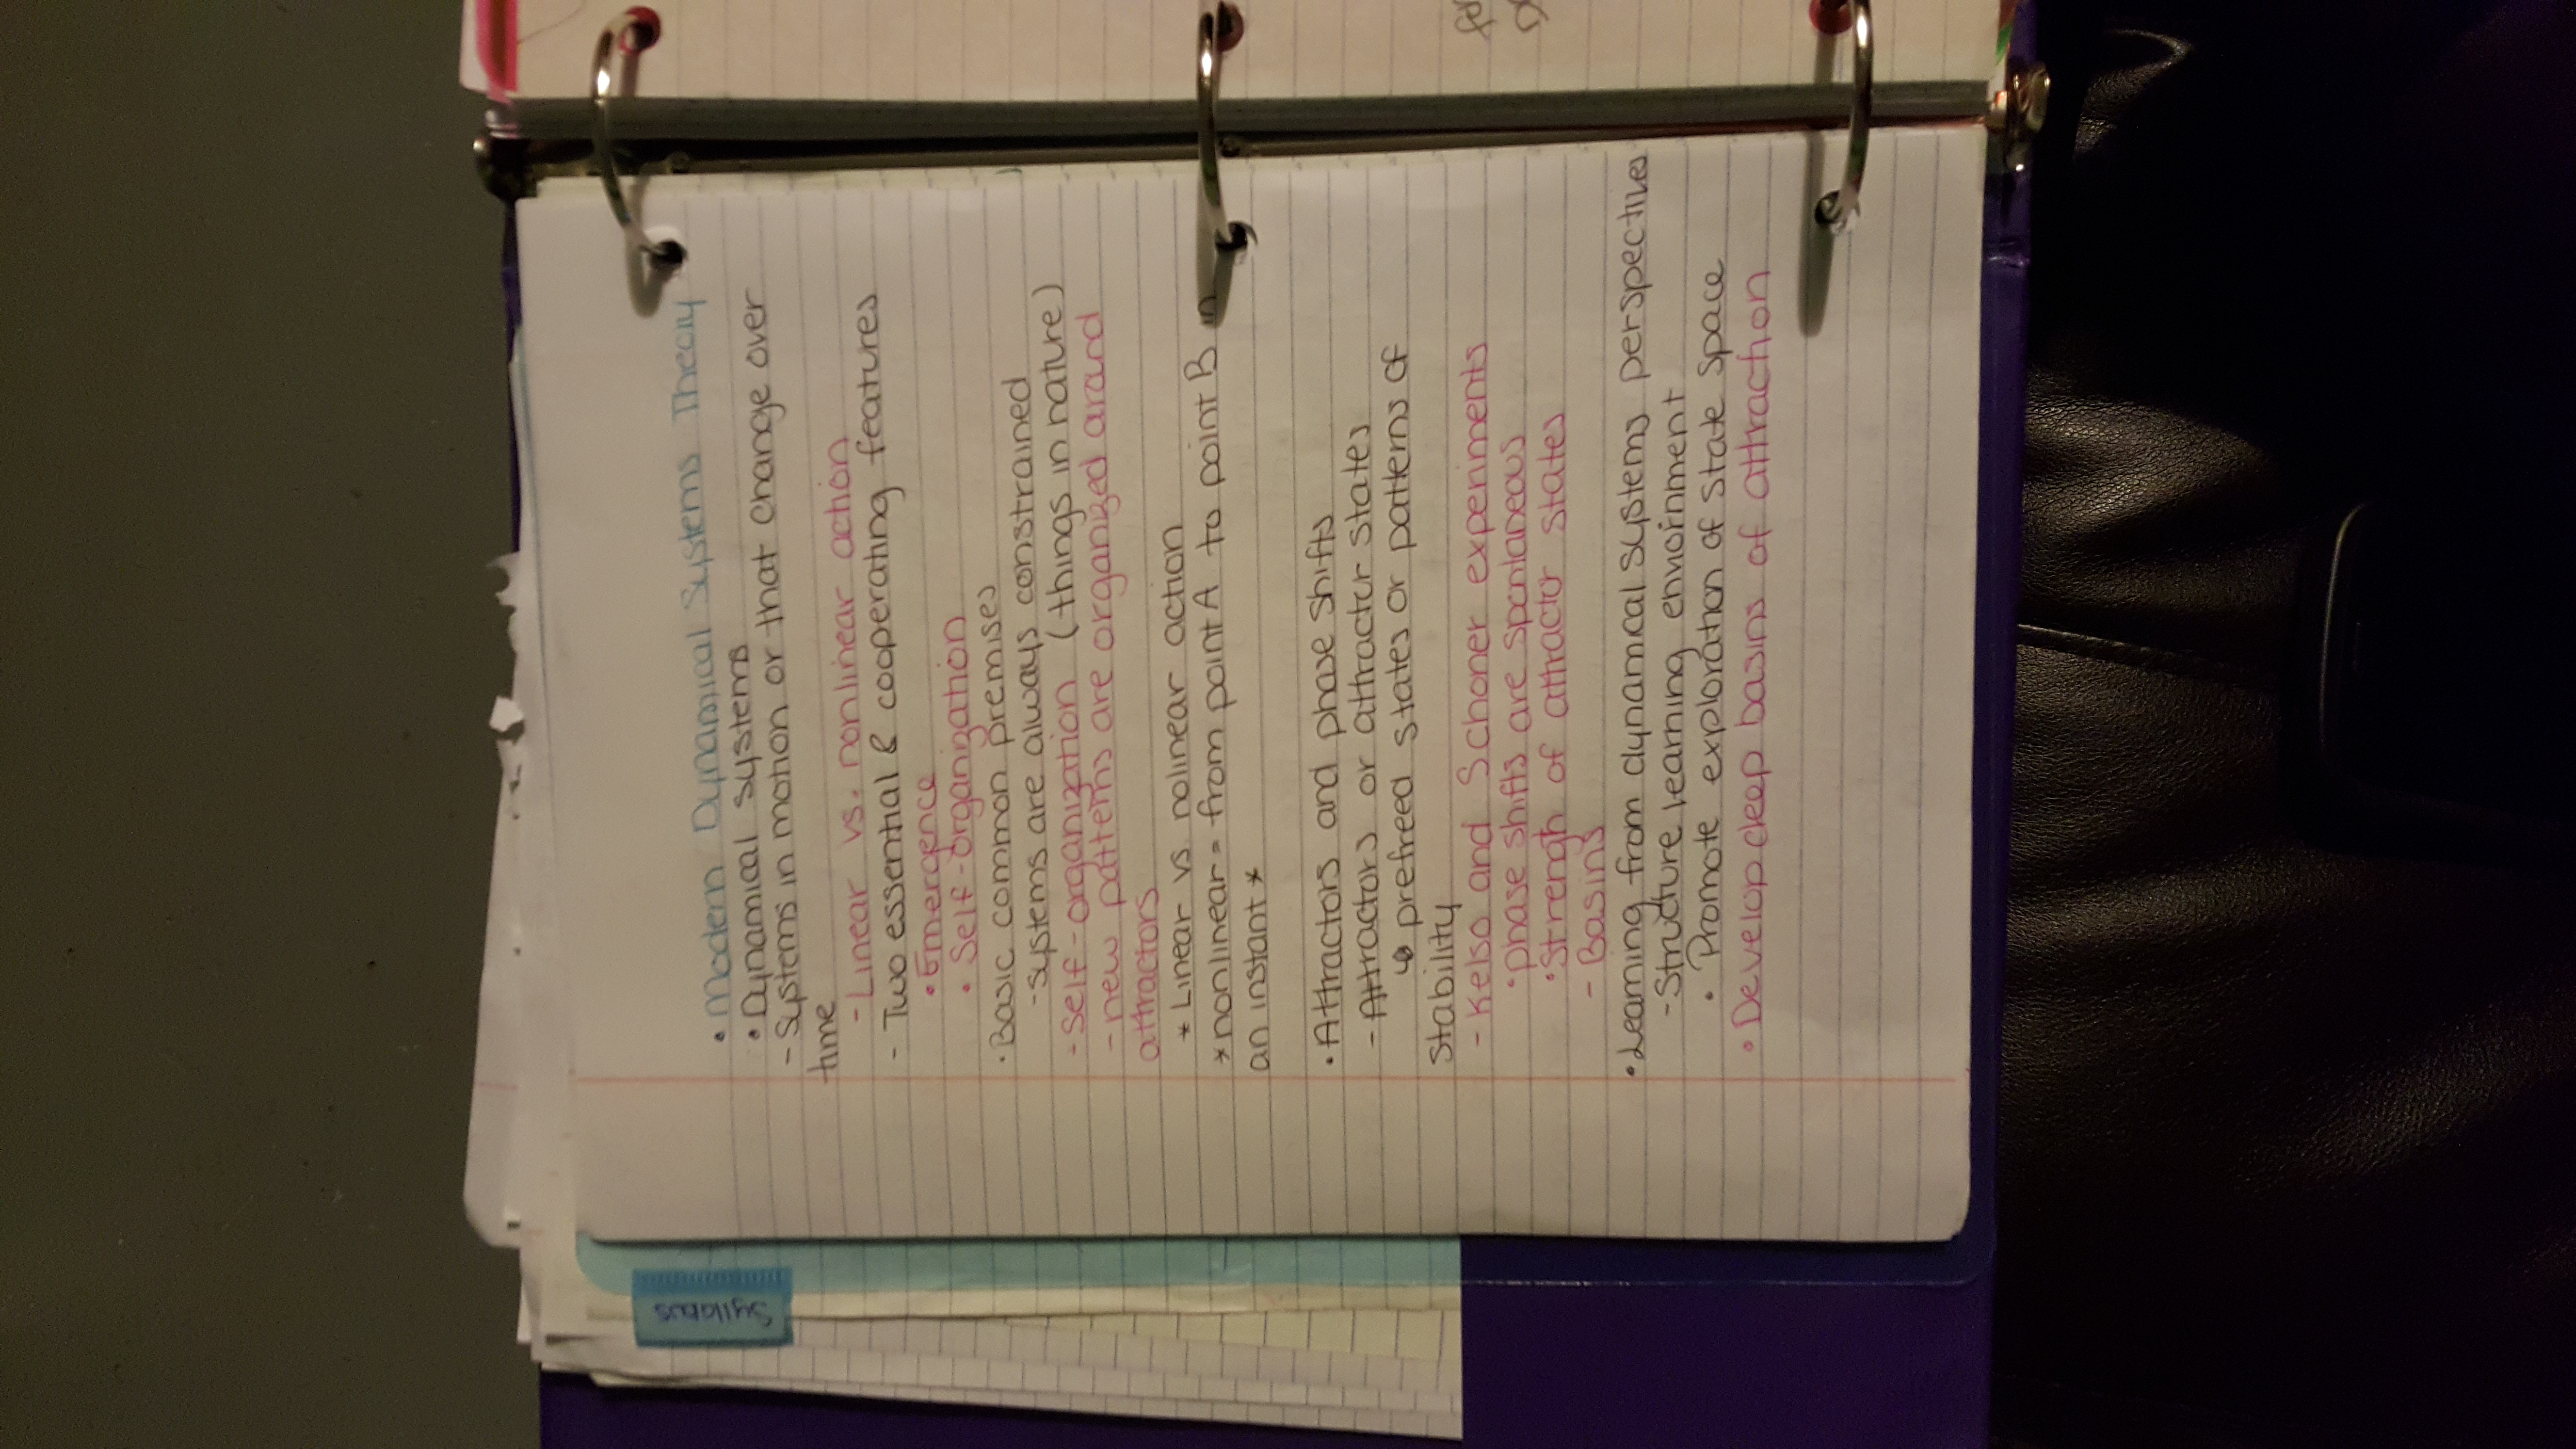 • Modern Dynamical Systems Theory
• Dynamical systems
- Systems in motion or that change over
time
- Linear vs. nonlinear action
- Two essential & cooperating features
• Emergence
• Self-organization
• Basic common premises
- systems are always constrained
- Self-organization (things in nature)
- new patterns are organized around
attractors
* Linear vs. nolinear action
* nonlinear = from point A to point B in
an instant *
• Attractors and phase shifts
- Attractors or attractur states
↳ prefreed states or patterns of
Stability
- Kelso and Schoner experiments
• phase shifts are spontaneous
• Strengh of attractor states
- Basins
• Learning from dynamical systems perspectives
- Structure learning envoirnment
• Promote exploration of state space
• Develop deep basins of attraction
Syllabus